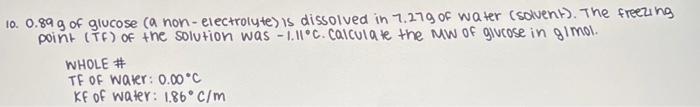 10. 0.89 g of glucose (a non-electrolyte) is dissolved in 7.27g of water (solvent). The freezing
point (TF) of the solution was -1.11°C. Calculate the MW of glucose in g/mol.
WHOLE #
TF of water: 0.00°C
KF of water: 1.86°C/m